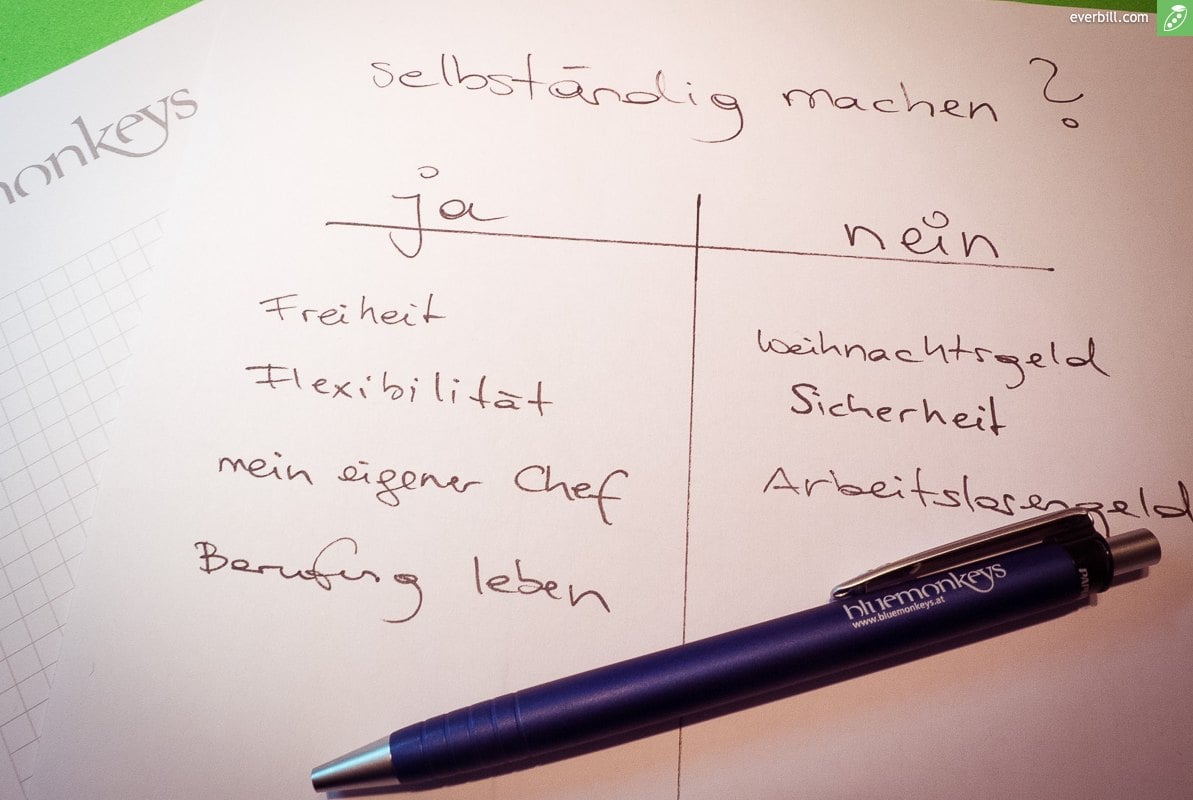 everbill.com
monkeys
selbständig machen ?
ja
nein
Freiheit
Flexibilität
mein eigener Chef
Berufung leben
Weihnachtsgeld
Sicherheit
Arbeitslosengeld
bluemonkeys
www.bluemonkeys.at